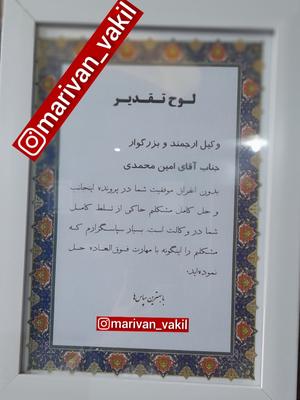 @marivan_vakil
لوح تقدیر
وکیل ارجمند و بزرگوار
جناب آقای امین محمدی
بدون اغراق موفقیت شما در پرونده اینجانب
و حل کامل مشکلم حاکی از تسلط کامل
شما در وکالت است. بسیار سپاسگزارم که
مشکلم را اینگونه با مهارت فوق‌العاده حل
نموده‌اید.
با بهترین سپاس‌ها
@marivan_vakil